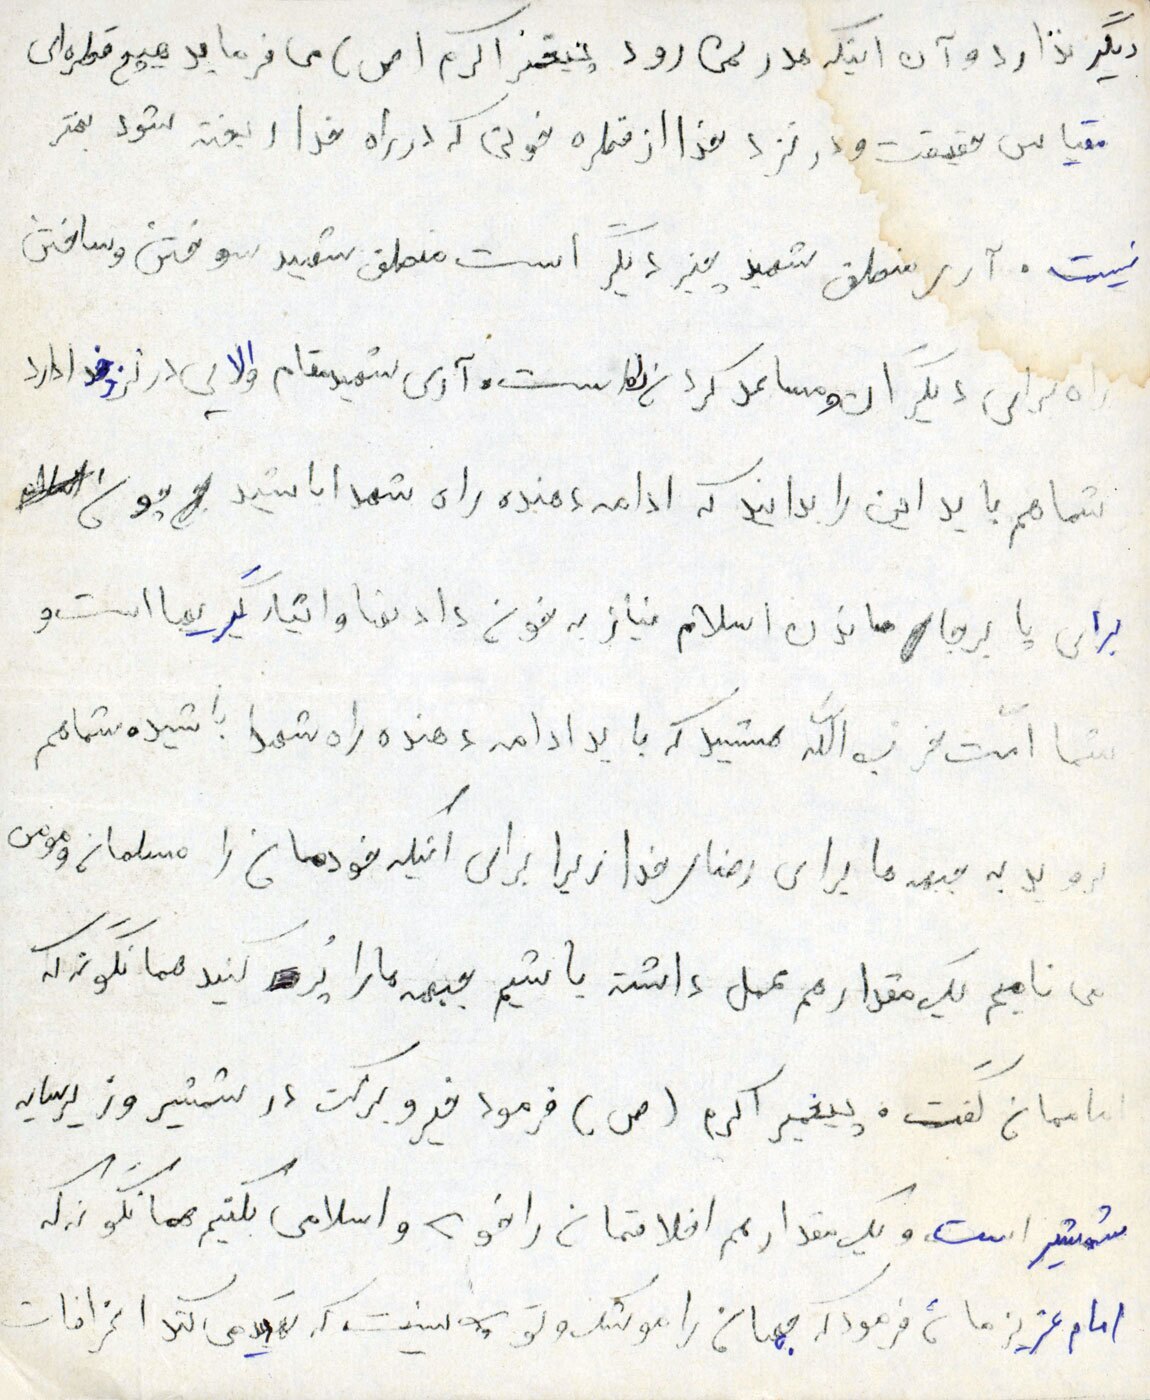 دیگر نذارد و آن اینکه هدر نمی رود پیغمبر اکرم (ص) می فرماید هیچ قطره ای
مقیاس حقیقت و در نزد خدا از قطره خونی که در راه خدا ریخته شود بهتر
نیست . آری منطق شهید چیز دیگر است منطق شهید سوختن و ساختن
راه برای دیگران و مساعد کردن راه است . آری شهید مقام والایی در نزد خدا دارد
شما هم باید این را بدانید که ادامه دهنده راه شهدا باشید چون
برای پا برجا ماندن اسلام نیاز به خون دادنها و ایثارگریها است و
شما امت حزب الله هستید که باید ادامه دهنده راه شهدا باشیده شما هم
بروید به جبهه ها برای رضای خدا زیرا برای اینکه خودمان را مسلمان و مومن
می نامیم یک مقدار هم عمل داشته باشیم جبهه ها را پُر کنید همانگونه که
اماممان گفت . پیغمبر اکرم (ص) فرمود خیر و برکت در شمشیر و زیر سایه
شمشیر است و یک مقدار هم اخلاقمان را خوب و اسلامی بکنیم همانگونه که
امام عزیزمان فرمود که جهان را موشک و توپ نیست که می کند انحرافات